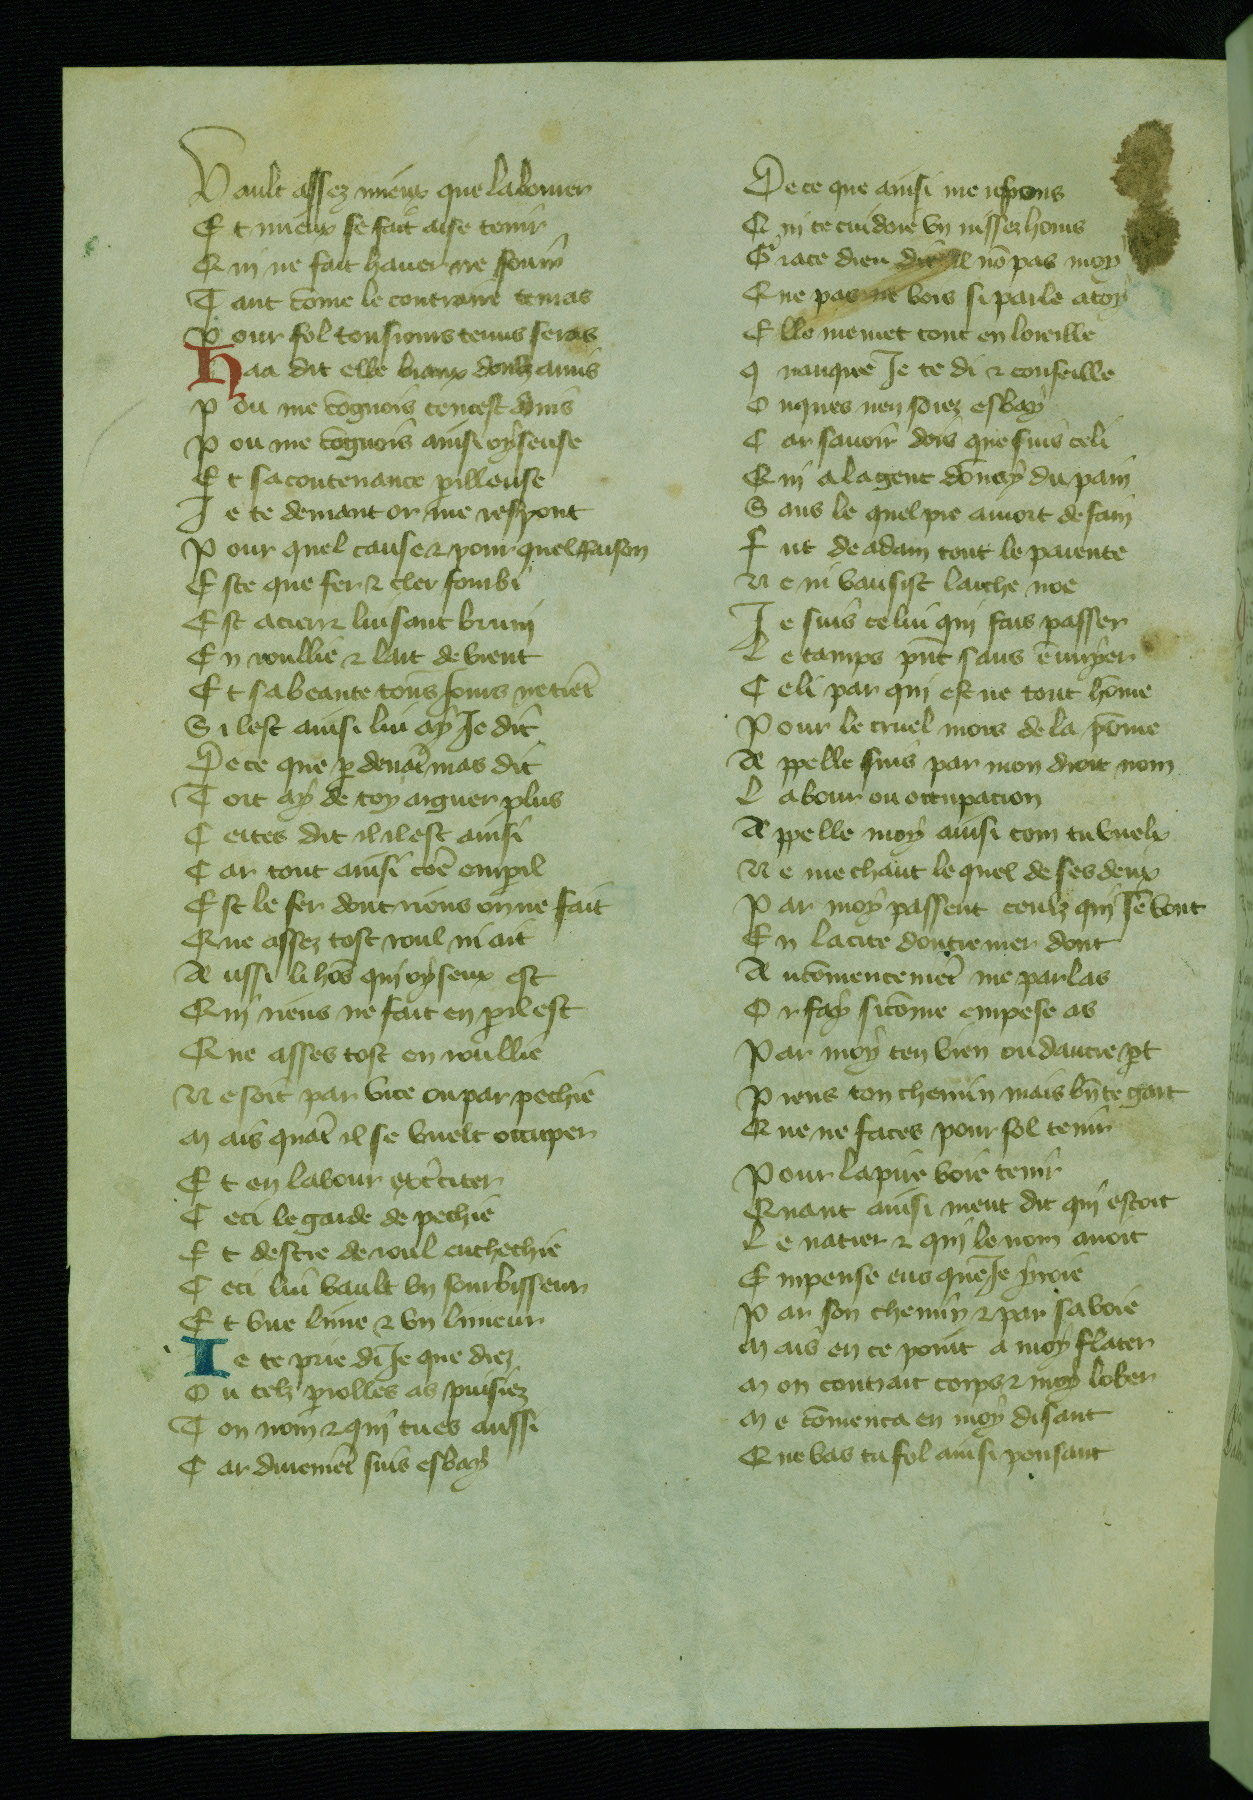 Vault assez mieux que labourer
Et mieux se fait aise tenir
Qui ne fait haver ne fouir
Tant cōme le contraire tenras
Pour fol tousiours tenus seras
Haa dit elle biaux doulz amis
Pou me cōgnois
Pou me cōgnois ainsi oyseuse
Et sa contenance pilleuse
Ie te demant or me respont
Pour quel cause ⁊ pour quel raison
Este que fer ⁊ cler forbi
Est acier ⁊ luisant bruni
En roullie ⁊ lait devient
Et sa beaute tousiours
Si lest ainsi lui ay Ie dit
De ce que p devāt mas dit
Tort ay de toy arguer plus
Certes dit il il est ainsi
Car tout ainsi cōe en pil
Est le fer dont riens on ne fait
Que assez tost roul ni ait
Aussi li hōs qui oyseux est
Qui riens ne fait en pil est
Que asses tost en roullie
Ne soit par vice ou par pechie
Mais quāt il se vuelt occuper
Et en labour exciter
Ceci le garde de pechie
Et destre de roul entechie
Ceci lui vault vn fourbisseur
Et vne lime ⁊ vn limeur
Ie te prie di Ie que diez
Ou telz polles as puisiez
Ton nom ⁊ qui tu es aussi
Car durement suis esbay
De ce que ainsi me respons
Qui te cuidoie vn
Grace dieu dit il nō pas moy
Que pas ne vois si parle a toy
Elle me met tout en loreille
Quanque Ie te di ⁊ conseille
Onques nen soiez esbay
Car savoir dois que suis celi
Qui a la gent dōnay du pain
Sans le quel pie a mort de fain
Fut de adam tout le parente
Ne ni vausist larche noe
Ie suis celui qui fais passer
Le tamps pnt sans ēnuyer
Celi par qui est ne tout hōme
Pour le cruel mors de la pōme
Appelle suis par mon droit nom
Labour ou occupacion
Appelle moy ainsi com tu vuelx
Ne me chaut lequel de ses deux
Par moy passent ceulz qui sē vont
En la cite doutremer dont
Au cōmencemēt me parlas
Or fay si cōme empese as
Par moy ten vien ou dautre pt
Prens ton chemin mais bn te gart
Que ne faces pour fol tenir
Pour la pire voie tenir
Quant ainsi ment dit qui estoit
Le natier ⁊ qui le nom avoit
Empense eus que Ie yroie
Par son chemin ⁊ par sa voie
Mais en ce point a moy flater
Mon contrait corps ⁊ moy lober
Me cōmenca en moy disant
Que vas tu fol ainsi pensant